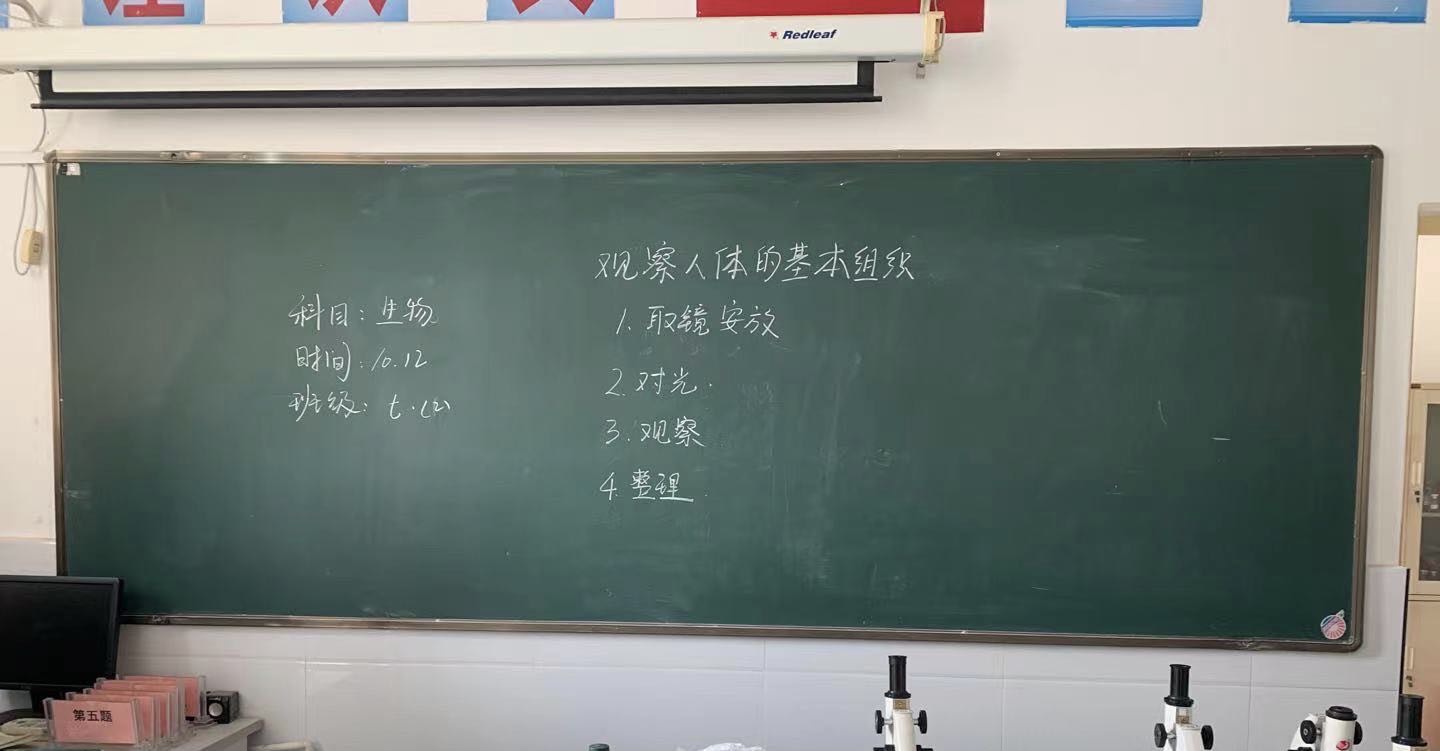 Redleaf
观察人体的基本组织
科目:生物
时间:10.12
班级:七.(2)
1.取镜安放
2.对光.
3.观察
4.整理.
第五题